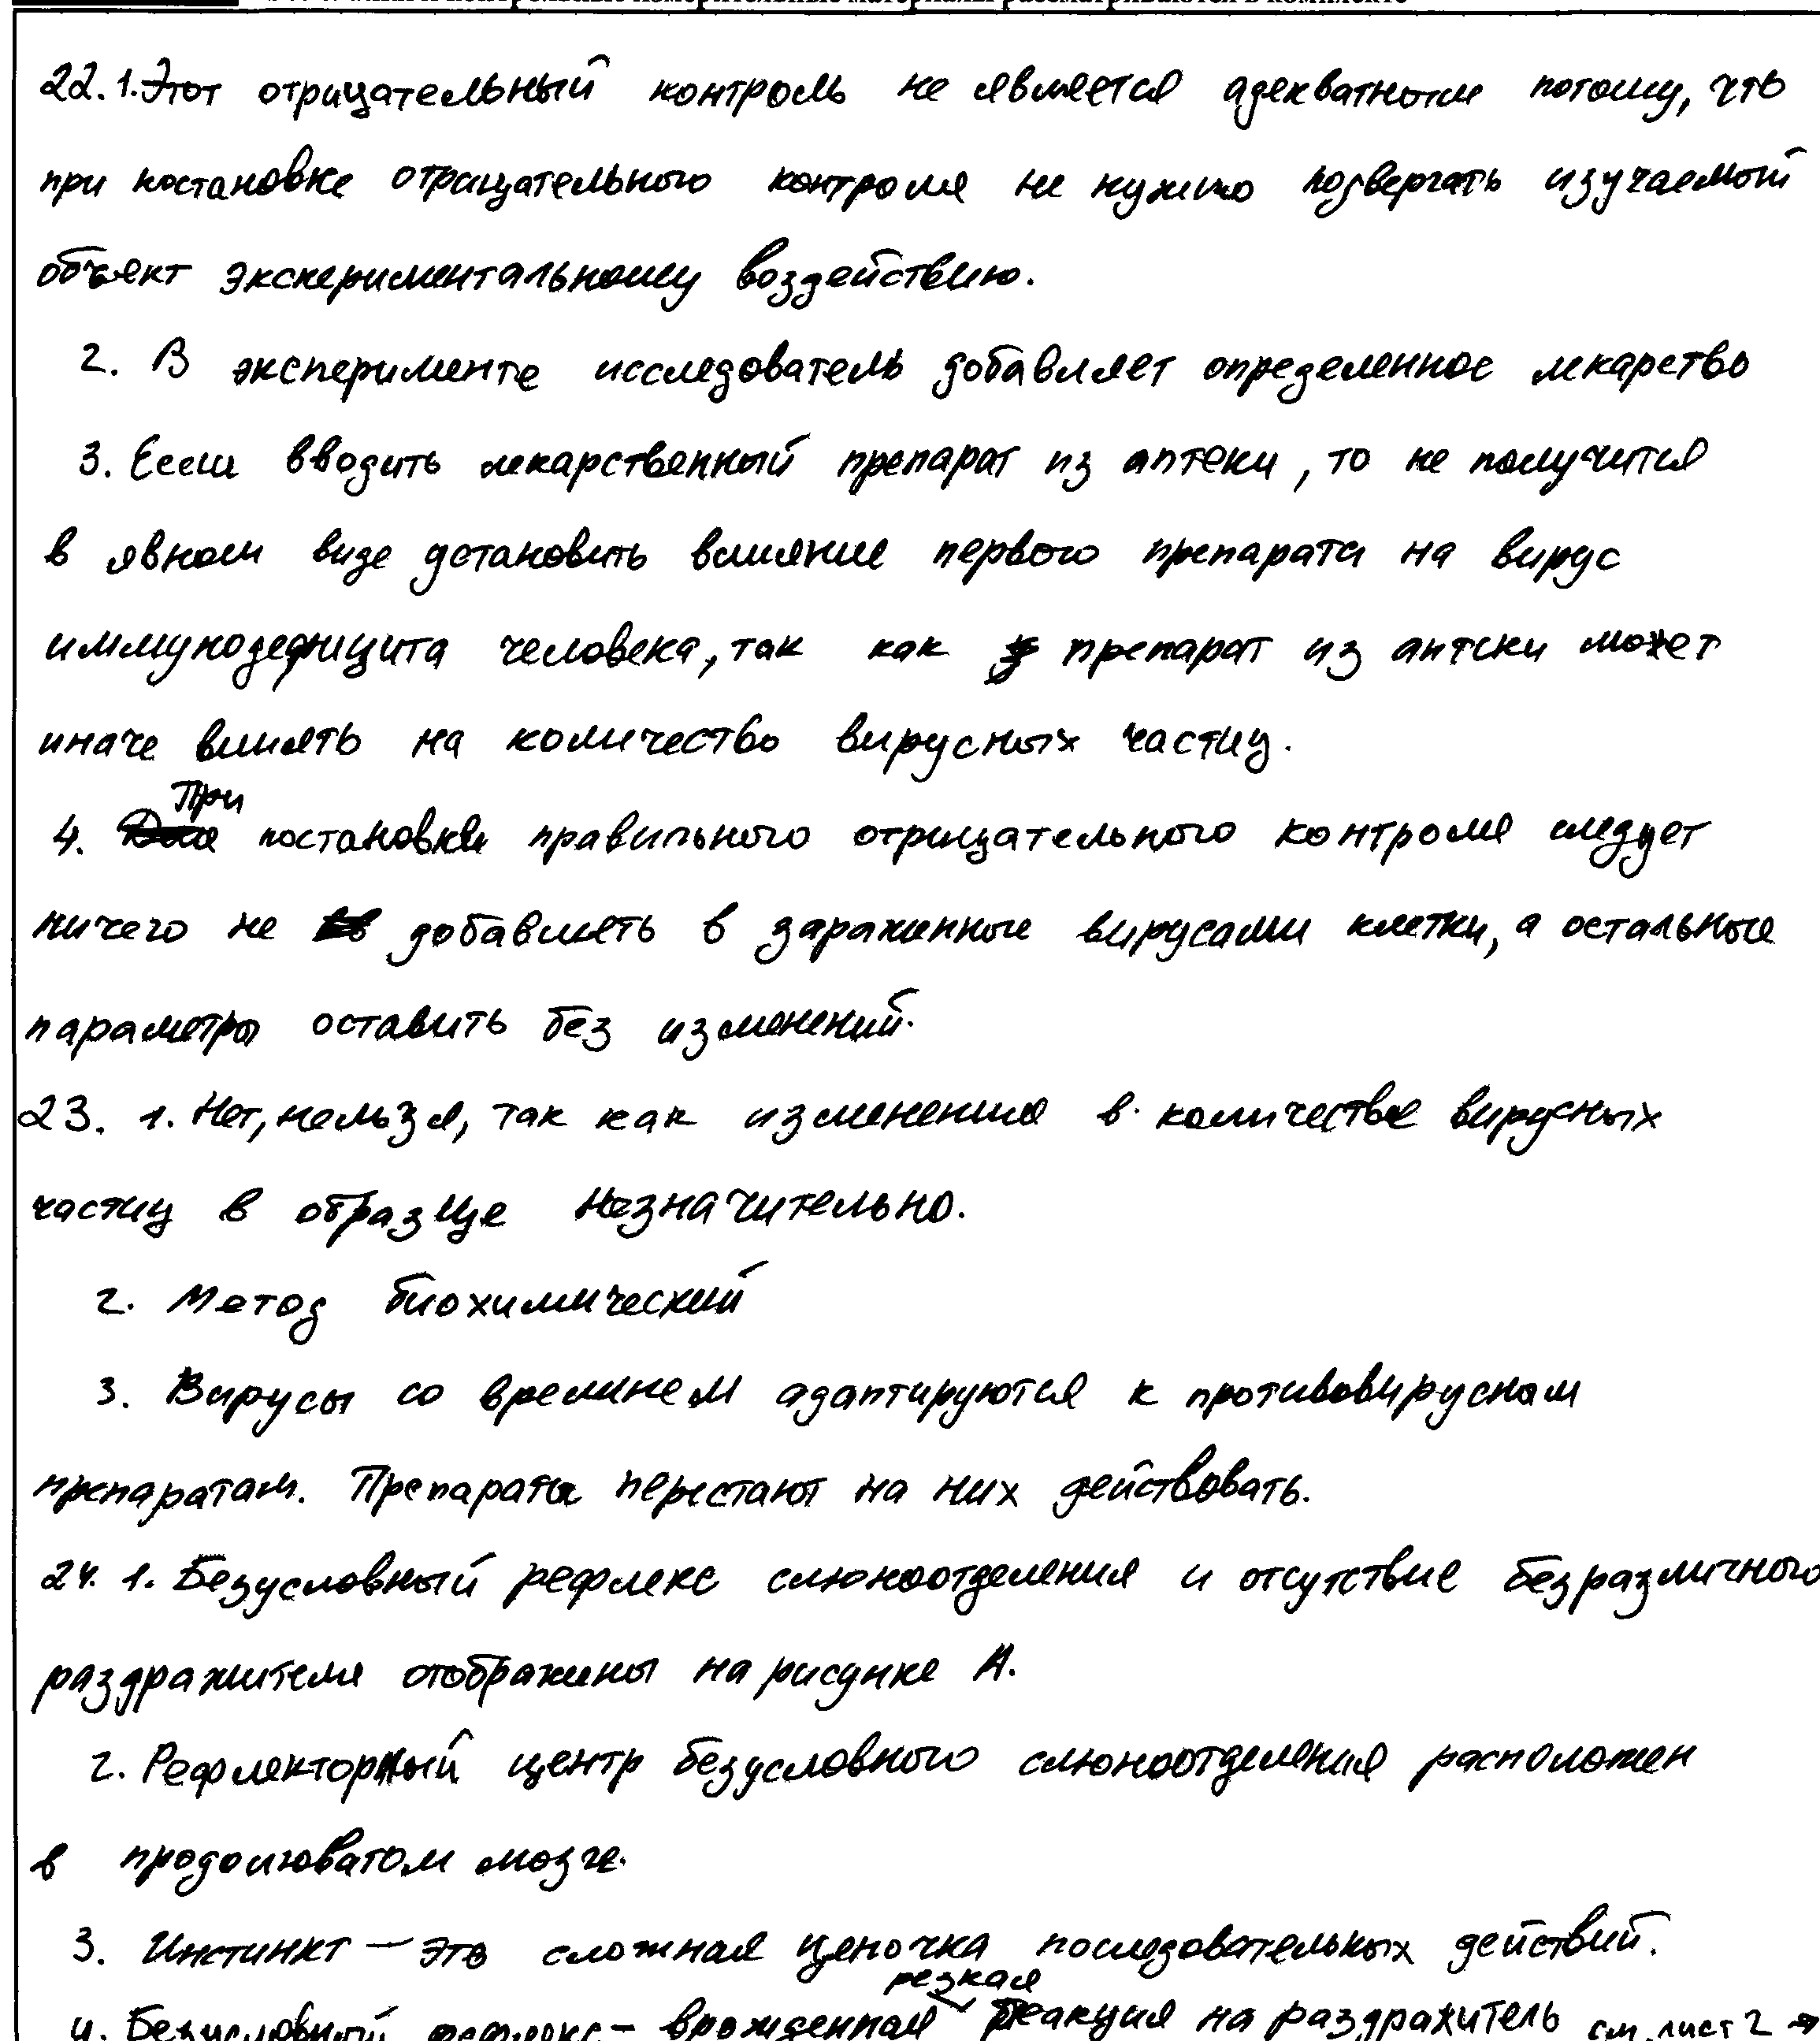 22. 1. Этот отрицательный контроль не является адекватным потому, что
при постановке отрицательного контроля не нужно подвергать изучаемый
объект экспериментальному воздействию.
2. В эксперименте исследователь добавляет определенное лекарство
3. Если вводить лекарственный препарат из аптеки, то не получится
в явном виде установить влияние первого препарата на вирус
иммунодефицита человека, так как препарат из аптеки может
иначе влиять на количество вирусных частиц.
4. При постановке правильного отрицательного контроля следует
ничего не добавлять в зараженные вирусами клетки, а остальные
параметры оставить без изменений.
23. 1. Нет, нельзя, так как изменения в количестве вирусных
частиц в образце незначительно.
2. Метод биохимический
3. Вирусы со временем адаптируются к противовирусном
препаратам. Препараты перестают на них действовать.
24. 1. Безусловный рефлекс слюноотделения и отсутствие безразличного
раздражителя отображены на рисунке А.
2. Рефлекторный центр безусловного слюноотделения расположен
в продолговатом мозге.
3. Инстинкт — это сложная цепочка последовательных действий.
4. Безусловный рефлекс - врожденная резкая реакция на раздражитель см. лист 2 →